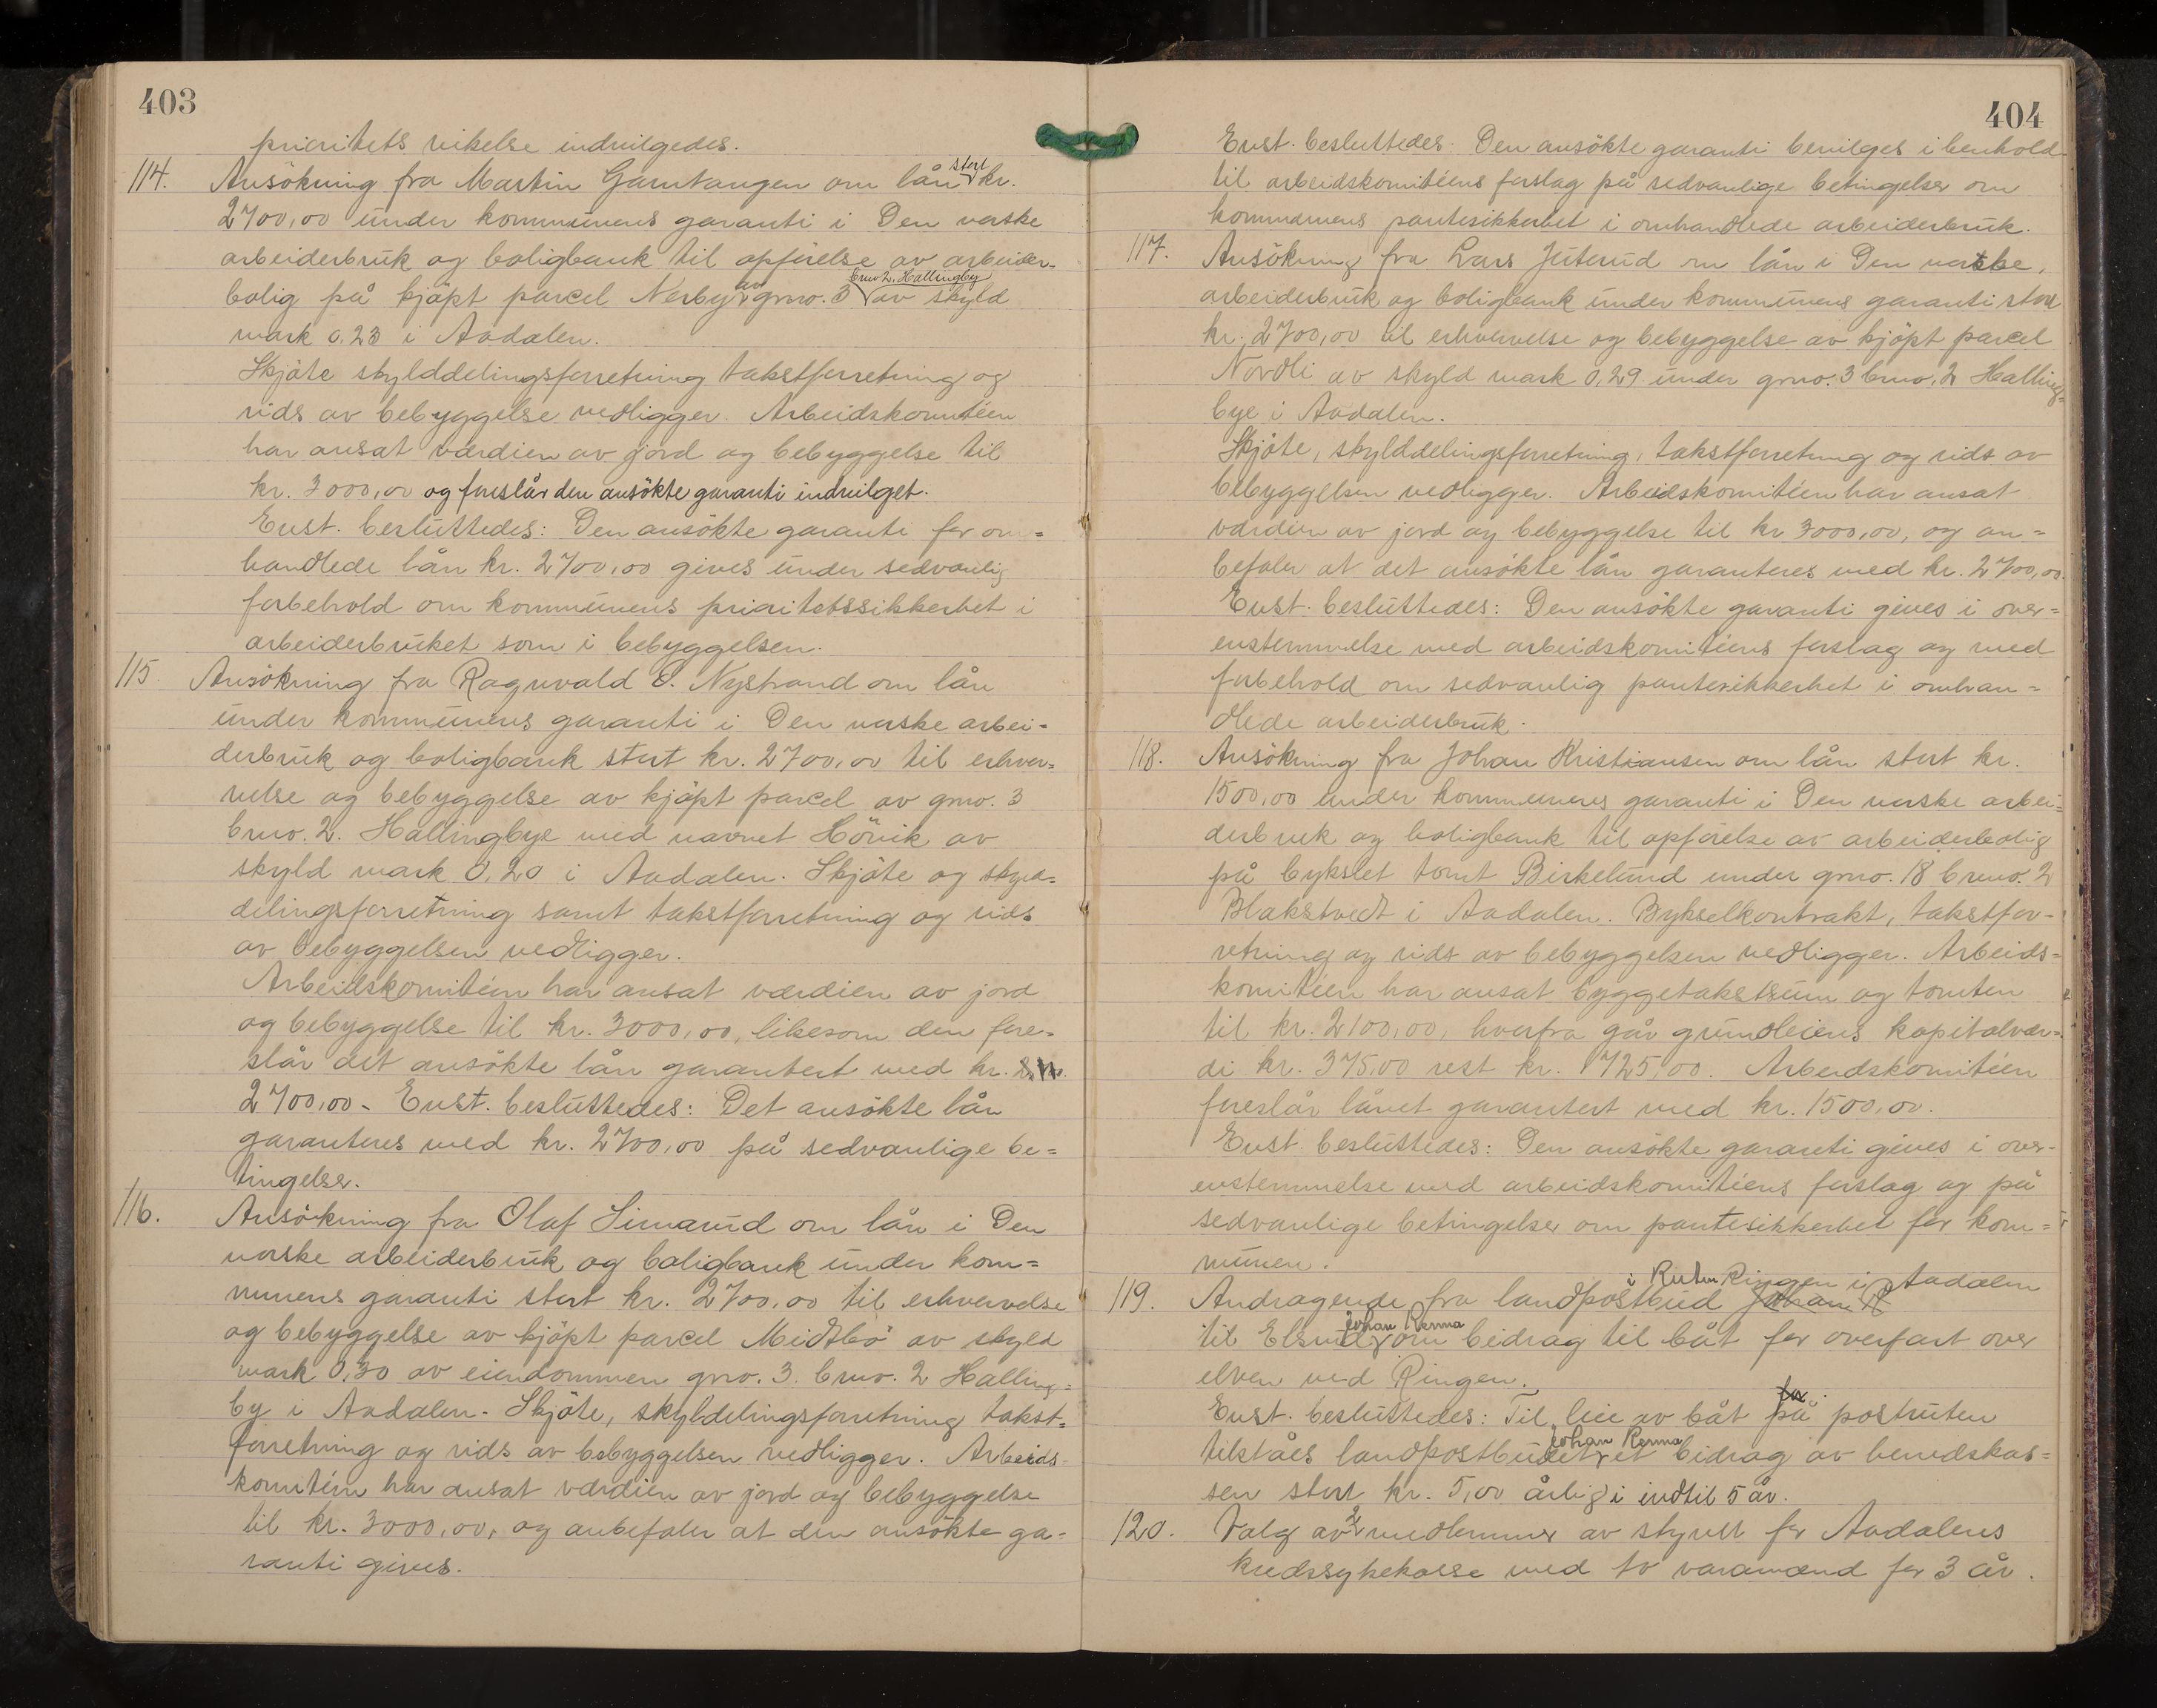 403
prioritets vikelse indvilgedes.
114. Ansökning fra Martin Gamtangen om lån stort kr.
2700,00 under kommunens garanti i Den norske
arbeiderbruk og boligbank til opförelse av arbeider-
bolig på kjöpt parcel Nerby av gno. 3 bno 2. Hallingby av skyld
mark 0,23 i Aadalen.
Skjöte skylddelingsforretning takstforretning og
rids av bebyggelse vedligger. Arbeidskomitéen
har ansat værdien av jord og bebyggelse til
kr. 3000,00 og foreslår den ansökte garanti indvilget.
Enst. besluttedes: Den ansökte garanti for om=
handlede lån kr. 2700,00 gives under sedvanlig
forbehold om kommunens prioritetssikkerhet i
arbeiderbruket som i bebyggelsen.
115. Ansökning fra Ragnvald E. Nystrand om lån
under kommunens garanti i Den norske arbei-
derbruk og boligbank stort kr. 2700,00 til erhver=
velse og bebyggelse av kjöpt parcel av gno. 3
bno. 2. Hallingbye med navnet Hövik av
skyld mark 0,20 i Aadalen. Skjöte og skyld=
delingsforretning samt takstforretning og rids
av bebyggelsen vedligger.
Arbeidskomitéen har ansat værdien av jord
og bebyggelse til kr. 3000,00, likesom den fore-
slår det ansökte lån garantert med kr.
2700,00 - Enst. besluttedes: Det ansökte lån
garanteres med kr. 2700,00 på sedvanlige be=
tingelser.
116. Ansökning fra Olaf Simarud om lån i Den
norske arbeiderbruk og boligbank under kom=
munens garanti stort kr. 2700,00 til erhvervelse
og bebyggelse av kjöpt parcel Meidtbö av skyld
mark 0,30 av eiendommen gno. 3. bno. 2 Halling=
by i Aadalen. Skjöte, skyldelingsforretning takst=
forretning og rids av bebyggelsen vedligger. Arbeids
komitéen har ansat værdien av jord og bebyggelse
til kr. 3000,00, og anbefaler at den ansökte ga-
ranti gives.
404
Enst. besluttedes: Den ansökte garanti bevilges i henhold
til arbeidskomitéens forslag på sedvanlige betingelser om
kommunens pantesikkerhet i omhandlede arbeiderbruk.
117. Ansökning fra Lars Juterud om lån i Den norske
arbeiderbruk og boligbank under kommunens garanti stort
kr. 2700,00 til erhvervelse og bebyggelse av kjöpt parcel
Nordli av skyld mark 0,29 under gno. 3 bno. 2 Halling=
bye i Aadalen.
Skjöte, skylddelingsforretning, takstforretning og rids av
bebyggelsen vedligger. Arbeidskomitéen har ansat
værdien av jord og bebyggelse til kr 3000,00, og an=
befaler at det ansökte lån garanteres med kr. 2700,00.
Enst. besluttedes: Den ansökte garanti gives i over=
ensstemmelse med arbeidskomitéens forslag og med
forbehold om sedvanlig pantesikkerhet i omhan=
dlede arbeiderbruk.
118. Ansökning fra Johan Kristiansen om lån stort kr.
1500,00 under kommunens garanti i Den norske arbei=
derbruk og boligbank til opförelse av arbeiderbolig
på bykslet tomt Birkelund under gno. 18 bno. 2
Blakstvedt i Aadalen. Bykselkontrakt, takstfor-
retning og rids av bebyggelsen vedligger. Arbeids=
komitéen har ansat byggetakstsum og tomten
til kr. 2100,00, hvorfra går grundleiens kapitalvær=
di kr. 375,00 rest kr. 1725,00. Arbeidskomitéen
foreslår lånet garantert med kr. 1500,00.
Enst. besluttedes: Den ansökte garanti gives i over-
enstemmelse med arbeidskomitéens forslag og på
sedvanlige betingelser om pantesikkerhet for kom=
munen.
119. Andragende fra landpostbud Johan i Ruten Ringen i Aadalen
til Elsrud Johan Renna om beidrag til båt for overfart over
elven ved Ringen.
Enst. besluttedes: Til leie av båt for på postruten
tilståes landpostbudet Johan Renna et bidrag av herredskas=
sen stort kr. 5,00 årlig i indtil 5 år.
120. Valg av 2 medlemmer av styret for Aadalens
kredssykekasse med to varamænd for 3 år.